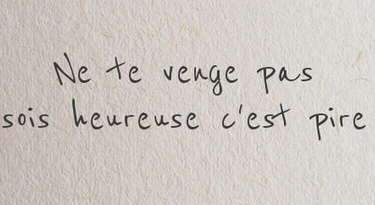 Ne te venge pas
sois heureuse c'est pire